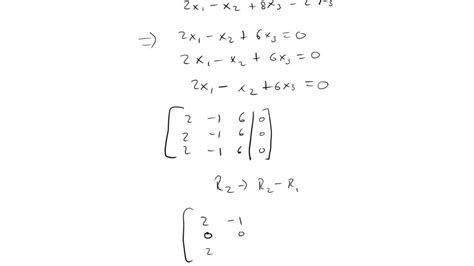 2x₁ - x₂ + 8x₃ - 2x₃
⇒ 2x₁ - x₂ + 6x₃ = 0
2x₁ - x₂ + 6x₃ = 0
2x₁ - x₂ + 6x₃ = 0
[ 2 -1 6 | 0 ]
[ 2 -1 6 | 0 ]
[ 2 -1 6 | 0 ]
R₂ → R₂ - R₁
[ 2 -1
0 0
2